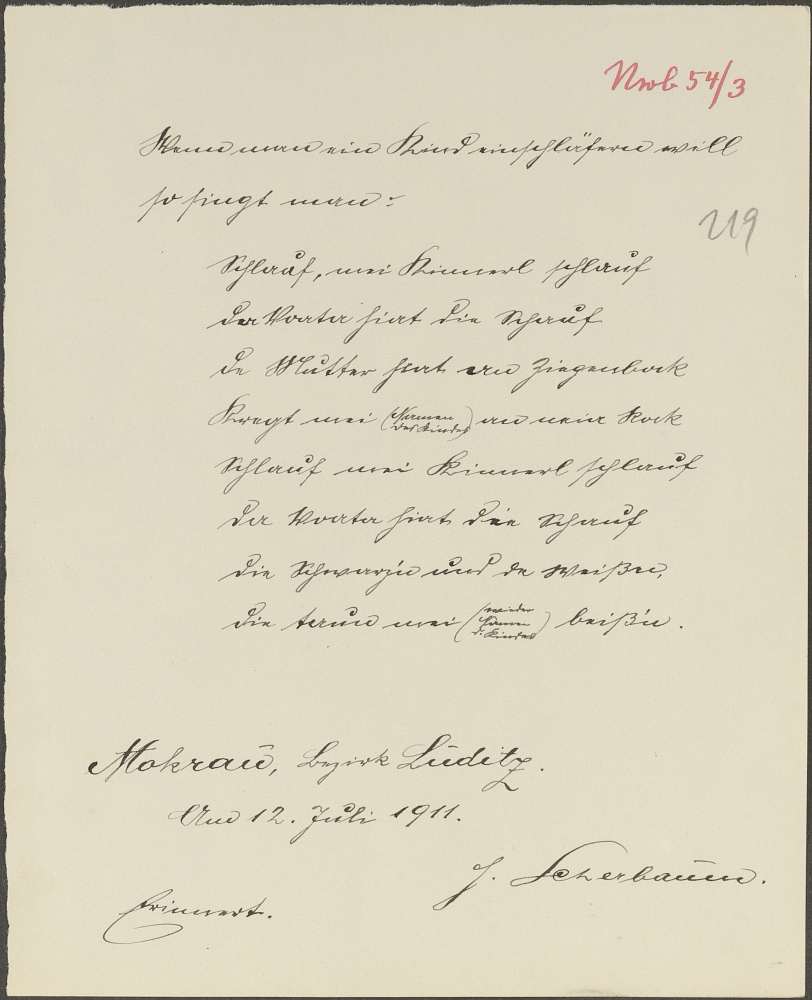 Nwb 54/3
Wenn man ein Kind einschläfern will
so singt man:
219
Schlauf, mei Kinnerl schlauf
der Voata hiat die Schauf
de Mutter hat an Ziegenbock
Kregt mei (Namen des Kindes) an nein Rock
Schlauf mei Kinnerl schlauf
da Voata hiat die Schauf
die Schwarz'n und de Weißen,
die taun mei (wieder Namen d. Kindes) beiß'n.
Mokrau, Bezirk Luditz.
Am 12. Juli 1911.
J. Scherbaum.
Erinnert.